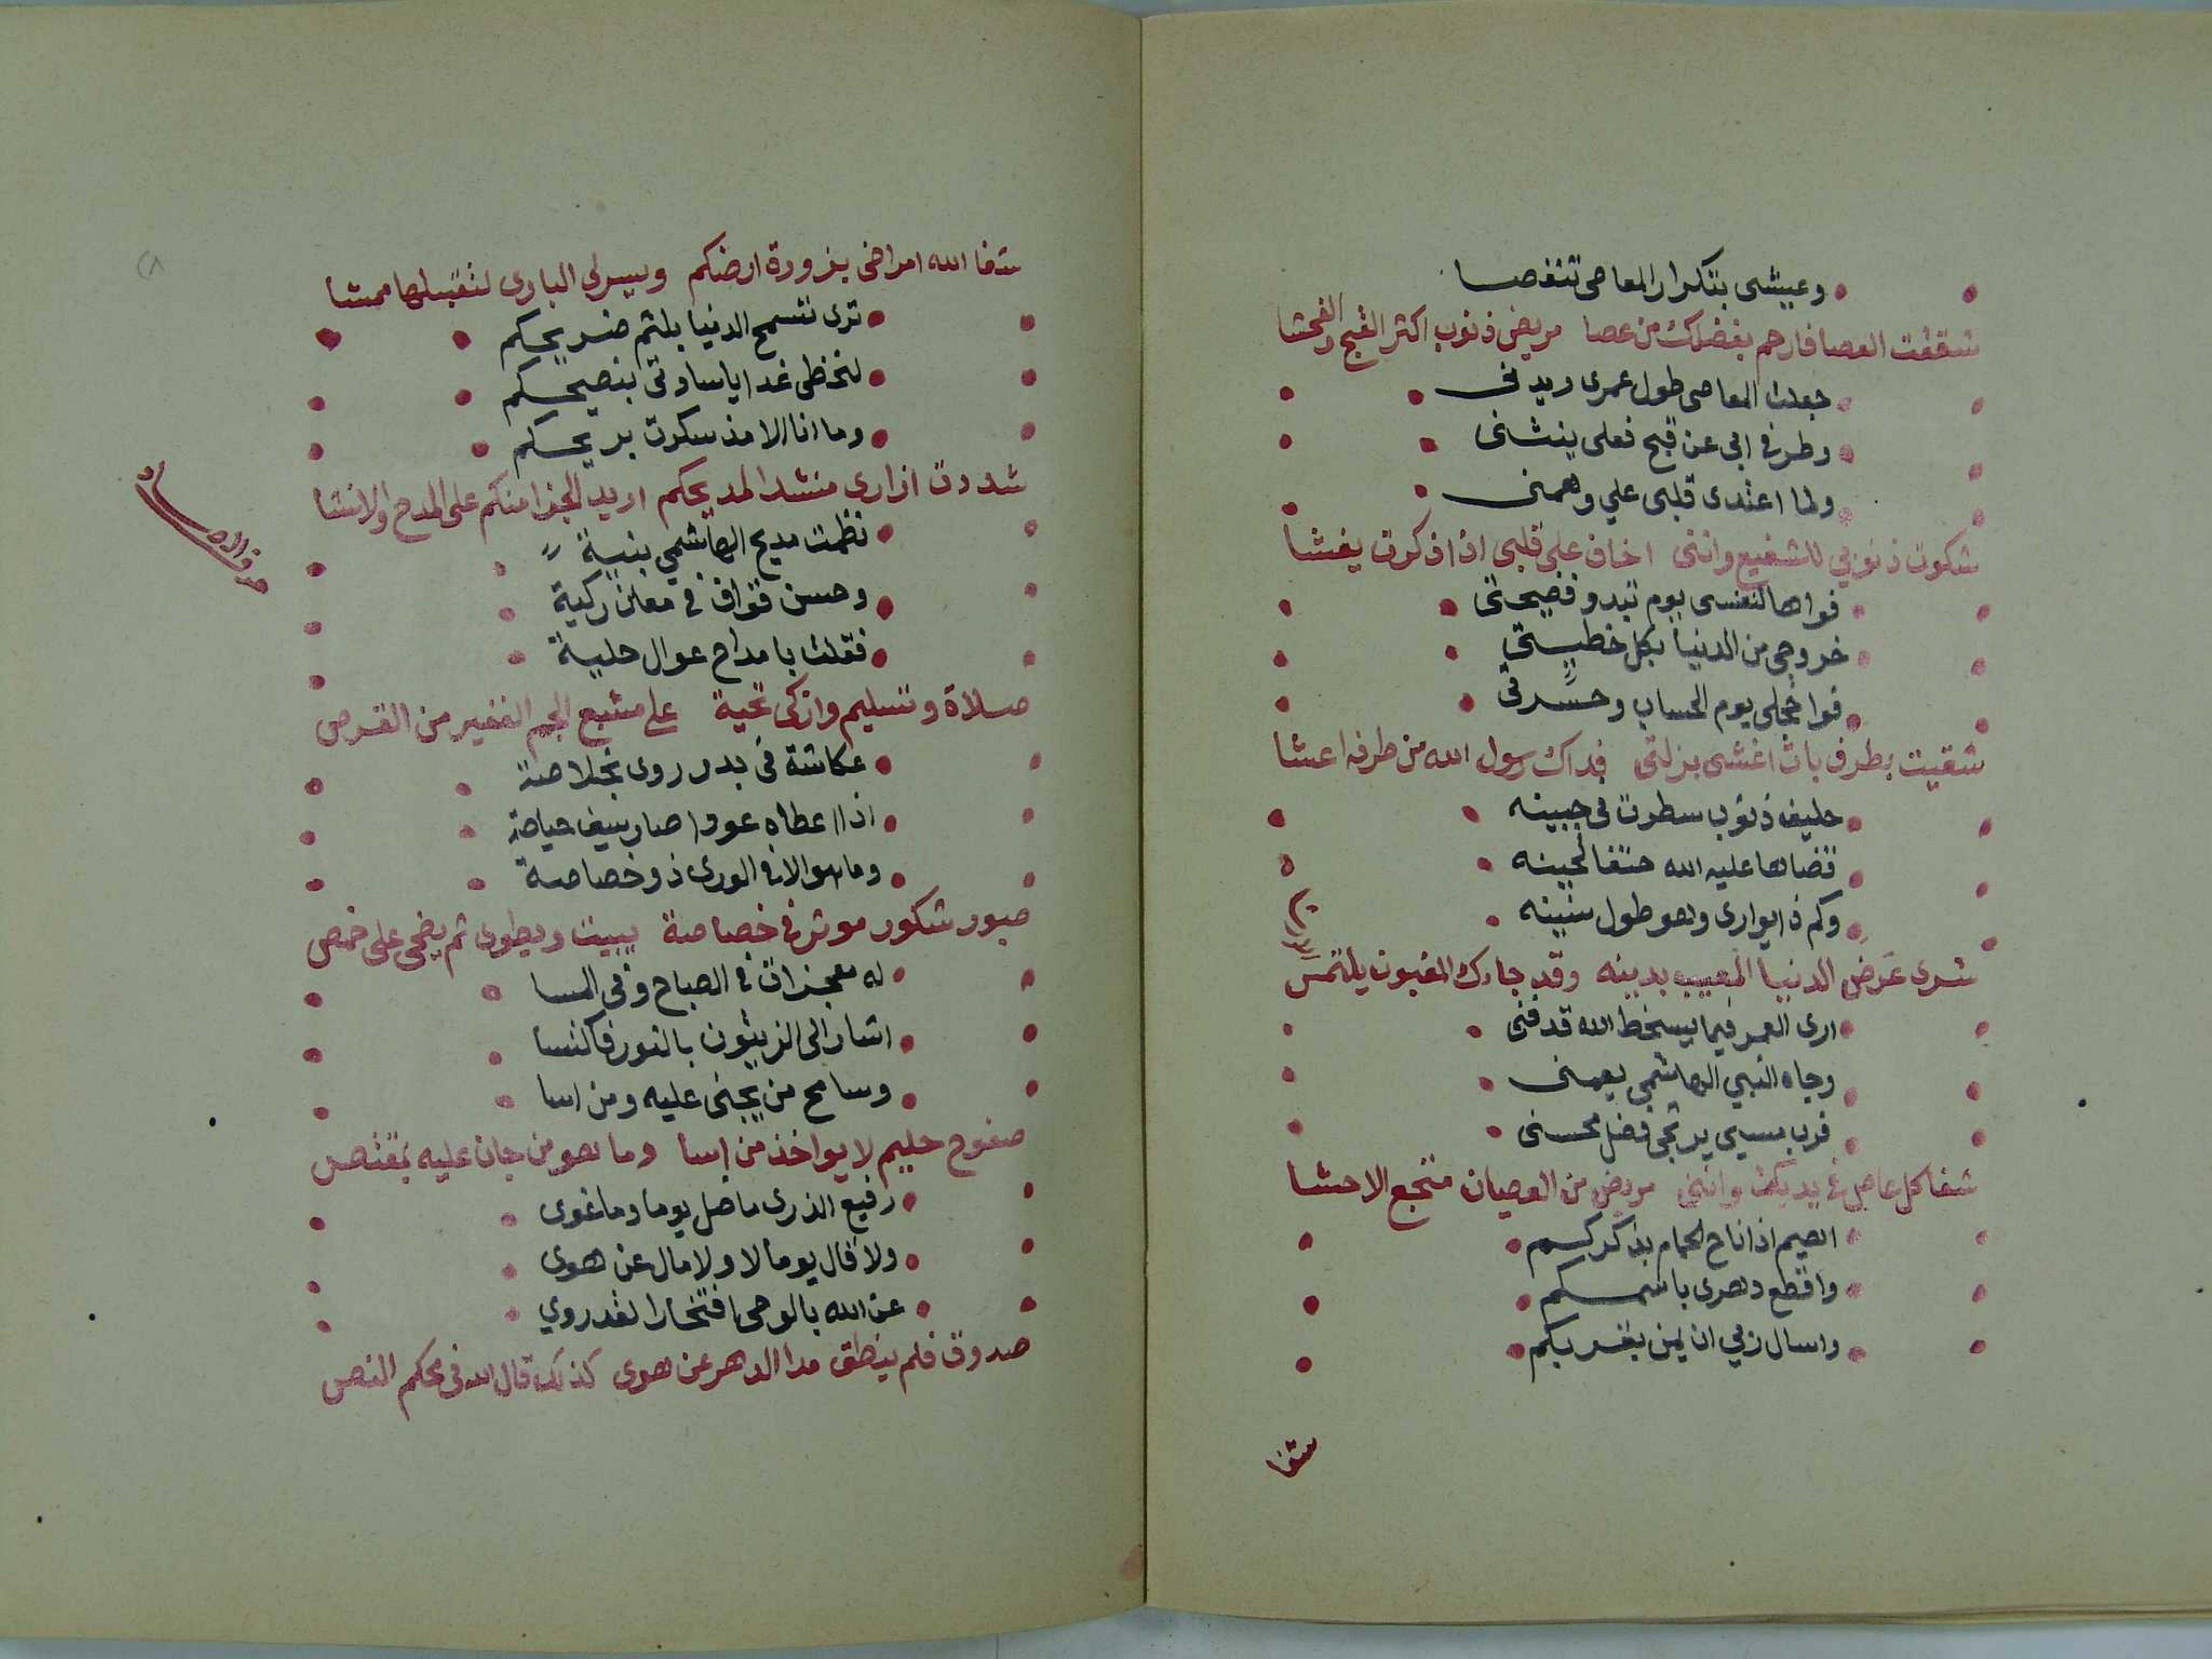 وعيشى بتكرار المعاصى تنغصا
شققت العصا فارحم بفضلك من عصا مريض ذنوب اكثر القبح والفحشا
جعلت المعاصى طول عمرى ديدنى
وطرفى ابى عن قبح فعلى ينثنى
ولما اعتدى قلبى علي وهمنى
شكوت ذنوبي للشفيع واننى اخاف على قلبى اذا ذكرت يغشا
فواها لنفسى يوم تبدو فضيحتى
خروجى من الدنيا بكل خطيىتى
فوا خجلى يوم الحساب وحسرتى
شقيت بطرف بات اغشى بزلتى فداك رسول الله من طرفه اعشا
حليف ذنوب سطرت فى جبينه
قضاها عليه الله حتفا لحينه
وكم ذا يوارى وهو طول سنينه
شرى عَرَضَ الدنيا المعيب بدينه وقد جاءك المغبون يلتمسَ
ارى العمر فيما يسخط الله قد فنى
وجاه النبي الهاشمي يعمنى
فرب مسيى يرتجى فضل محسنى
شفا كل عاص فى يديك واننى مريض من العصيان منتجع الاحشا
اهيم اذا ناح الحمام بذكركم
واقطع دهرى باسمكم
واسال ربي ان يمن بقربكم
شفا
شفا الله امراضى بزورة ارضكم ويسر لي البارى لتقبيلها ممشا
ترى تسمح الدنيا بلثم ضريحكم
لنحظى غدا ياسادتى بنصيحكم
وما انا الا مذ سكرت بريحكم
شددت ازارى منشدا لمديحكم اريد الجزا منكم على المدح والانشا
نظمت مديح الهاشمي بنية
وحسن قواف فى معان زكية
فقلت بامداح عوال حلية
صلاة وتسليم وازكى تحية على مشبع الجم الغفير من القرص
عكاشة فى بدر روى بخلاصة
اذا اعطاه عودا صار سيف
وما هو الا فى الورى ذو خصاصة
صبور شكور موثر فى خصاصة يبيت ويطوى ثم يضحى على خمص
له معجزات فى الصباح وفى المسا
اشار الى الزيتون بالنور فاكتسا
وسامح من يجنى عليه ومن اسا
صفوح حليم لا يواخذ من اسا وما هو من جان عليه بمقتص
رفيع الذرى ما ضل يوما وما غوى
ولا قال يوما لا ولا مال عن هوى
عن الله بالوحى افتخارا لقد روي
صدوق فلم ينطق مدا الدهر عن هوى كذلك قال الله فى محكم النص